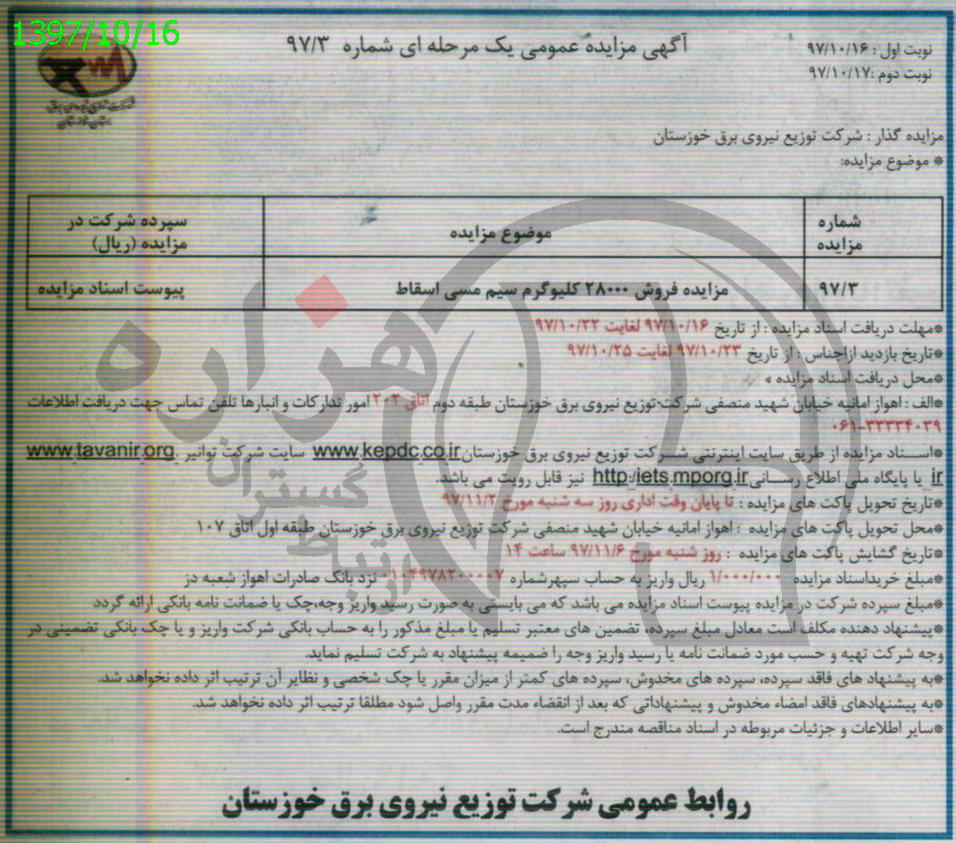 1397/10/16
آگهی مزایده عمومی یک مرحله ای شماره ۹۷/۳
نوبت اول : ۹۷/۱۰/۱۶
نوبت دوم : ۹۷/۱۰/۱۷
شرکت توزیع نیروی برق
استان خوزستان
مزایده گذار : شرکت توزیع نیروی برق خوزستان
* موضوع مزایده:
شماره مزایده
موضوع مزایده
سپرده شرکت در مزایده (ریال)
۹۷/۳
مزایده فروش ۲۸۰۰۰ کلیوگرم سیم مسی اسقاط
پیوست اسناد مزایده
*مهلت دریافت اسناد مزایده : از تاریخ ۹۷/۱۰/۱۶ لغایت ۹۷/۱۰/۲۲
*تاریخ بازدید ازاجناس : از تاریخ ۹۷/۱۰/۲۳ لغایت ۹۷/۱۰/۲۵
*محل دریافت اسناد مزایده »
*الف : اهواز امانیه خیابان شهید منصفی شرکت توزیع نیروی برق خوزستان طبقه دوم اتاق ۲۰۲ امور تدارکات و انبارها تلفن تماس جهت دریافت اطلاعات
۰۶۱-۳۳۳۳۴۰۳۹
*اسناد مزایده از طریق سایت اینترنتی شرکت توزیع نیروی برق خوزستان www.kepdc.co.ir سایت شرکت توانیر www.tavanir.org.
ir یا پایگاه ملی اطلاع رسانی http:/iets.mporg.ir نیز قابل رویت می باشد.
*تاریخ تحویل پاکت های مزایده : تا پایان وقت اداری روز سه شنبه مورخ ۹۷/۱۱/۲
*محل تحویل پاکت های مزایده : اهواز امانیه خیابان شهید منصفی شرکت توزیع نیروی برق خوزستان طبقه اول اتاق ۱۰۷
*تاریخ گشایش پاکت های مزایده : روز شنبه مورخ ۹۷/۱۱/۶ ساعت ۱۴
*مبلغ خریداسناد مزایده ۱/۰۰۰/۰۰۰ ریال واریز به حساب سپهرشماره ۰۱۰۴۹۷۸۲۰۰۰۰۷ نزد بانک صادرات اهواز شعبه دز
*مبلغ سپرده شرکت در مزایده پیوست اسناد مزایده می باشد که می بایستی به صورت رسید واریز وجه،چک یا ضمانت نامه بانکی ارائه گردد
*پیشنهاد دهنده مکلف است معادل مبلغ سپرده، تضمین های معتبر تسلیم یا مبلغ مذکور را به حساب بانکی شرکت واریز و یا چک بانکی تضمینی در
وجه شرکت تهیه و حسب مورد ضمانت نامه یا رسید واریز وجه را ضمیمه پیشنهاد به شرکت تسلیم نماید.
*به پیشنهاد های فاقد سپرده، سپرده های مخدوش، سپرده های کمتر از میزان مقرر یا چک شخصی و نظایر آن ترتیب اثر داده نخواهد شد.
*به پیشنهادهای فاقد امضاء مخدوش و پیشنهاداتی که بعد از انقضاء مدت مقرر واصل شود مطلقا ترتیب اثر داده نخواهد شد.
*سایر اطلاعات و جزئیات مربوطه در اسناد مناقصه مندرج است.
روابط عمومی شرکت توزیع نیروی برق خوزستان
هزاره
گستران
ارتباط